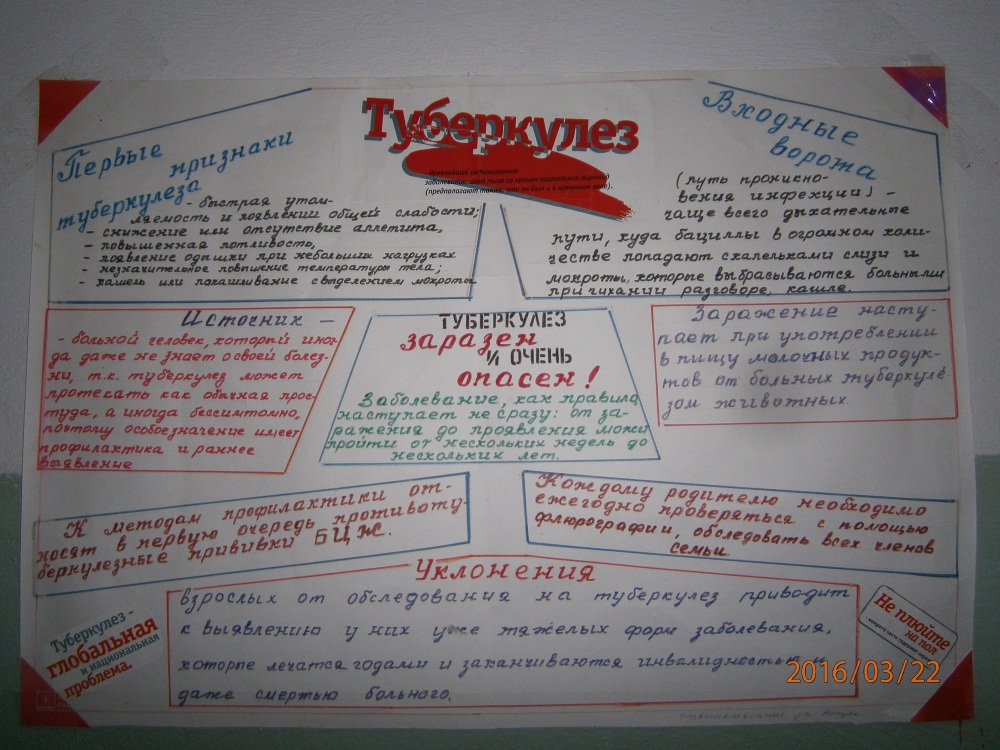 Туберкулез
древнейшее инфекционное
заболевание, известное со времен египетских пирамид
(предполагают также, что он был и в каменном веке).
Первые
признаки
туберкулеза
- быстрая утом-
ляемость и появлении общей слабости;
- снижение или отсутствие аппетита,
- повышенная потливость,
- появление одышки при небольших нагрузках
- незначительное повышение температуры тела;
- кашель или покашливание с выделением мокроты
Входные
ворота
(путь проникно-
вения инфекции) -
чаще всего дыхательные
пути, куда бациллы в огромном коли-
честве попадают с капельками слизи и
мокроты, которые выбрасываются больными
при чихании разговоре, кашле.
Источник -
- больной человек, который иног-
да даже не знает о своей болез-
ни, т.к. туберкулез может
протекать как обычная прос-
туда, а иногда бессимптомно,
поэтому особое значение имеет
профилактика и раннее
выявление
ТУБЕРКУЛЕЗ
заразен
И ОЧЕНЬ
опасен!
Заболевание, как правило
наступает не сразу: от за-
ражения до проявления может
пройти от нескольких недель до
нескольких лет.
Заражение насту-
пает при употреблении
в пищу молочных продук-
тов от больных туберкуле-
зом животных.
К методам профилактики от-
носят в первую очередь противоту-
беркулезные прививки БЦЖ.
Каждому родителю необходимо
ежегодно проверяться с помощью
флюрографии, обследовать всех членов
семьи.
Уклонения
взрослых от обследования на туберкулез приводит
к выявлению у них уже тяжелых форм заболевания,
которые лечатся годами и заканчиваются инвалидностью и
даже смертью больного.
Туберкулез -
глобальная
и национальная
проблема.
Не плюйте
на пол
2016/03/22